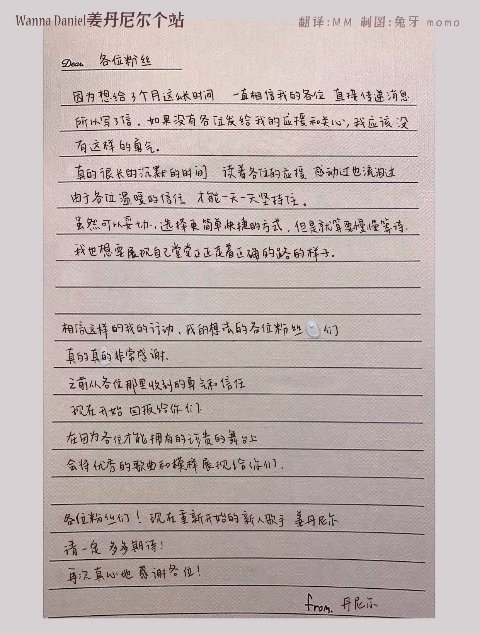 Wanna Daniel姜丹尼尔个站
翻译:MM 制图:兔牙 momo
Dear 各位粉丝
因为想给3个月这么长时间 一直相信我的各位 直接传递消息
所以写了信. 如果没有各位发给我的应援和关心, 我应该没
有这样的勇气.
真的很长的沉默的时间 读着各位的应援 感动过也流泪过
由于各位温暖的信任 才能一天一天坚持住.
虽然可以妥协, 选择更简单快捷的方式, 但是就算要慢慢等待
我也想要展现自己堂堂正正走着正确的路的样子.
相信这样的我的行动, 我的想法的各位粉丝们
真的真的非常感谢.
之前从各位那里收到的勇气和信任
现在开始 回报给你们
在因为各位才能拥有的珍贵的舞台上
会将优秀的歌曲和模样展现给你们.
各位粉丝们! 现在重新开始的新人歌手 姜丹尼尔
请一定 多多期待!
再次真心地 感谢各位!
from. 丹尼尔